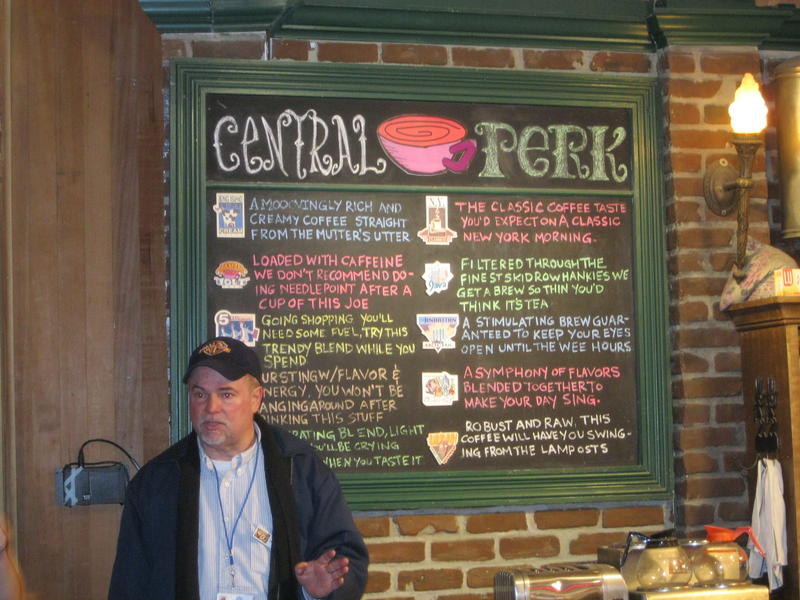 CENTRAL PERK
A MOOOVINGLY RICH AND
CREAMY COFFEE STRAIGHT
FROM THE MUTTER'S UTTER
LOADED WITH CAFFEINE
WE DON'T RECOMMEND DO-
ING NEEDLEPOINT AFTER A
CUP OF THIS JOE
GOING SHOPPING YOU'LL
NEED SOME FUEL, TRY THIS
TRENDY BLEND WHILE YOU
SPEND
URSTING W/ FLAVOR &
NERGY, YOU WON'T BE
ANGING AROUND AFTER
INKING THIS STUFF
RATING BLEND, LIGHT
OU'LL BE CRYING
WHEN YOU TASTE IT
THE CLASSIC COFFEE TASTE
YOU'D EXPECT ON A CLASSIC
NEW YORK MORNING.
FILTERED THROUGH THE
FINEST SKID ROW HANKIES WE
GET A BREW SO THIN YOU'D
THINK IT'S TEA
A STIMULATING BREW GUAR-
ANTEED TO KEEP YOUR EYES
OPEN UNTIL THE WEE HOURS
A SYMPHONY OF FLAVORS
BLENDED TOGETHER TO
MAKE YOUR DAY SING.
ROBUST AND RAW, THIS
COFFEE WILL HAVE YOU SWING-
ING FROM THE LAMPOSTS